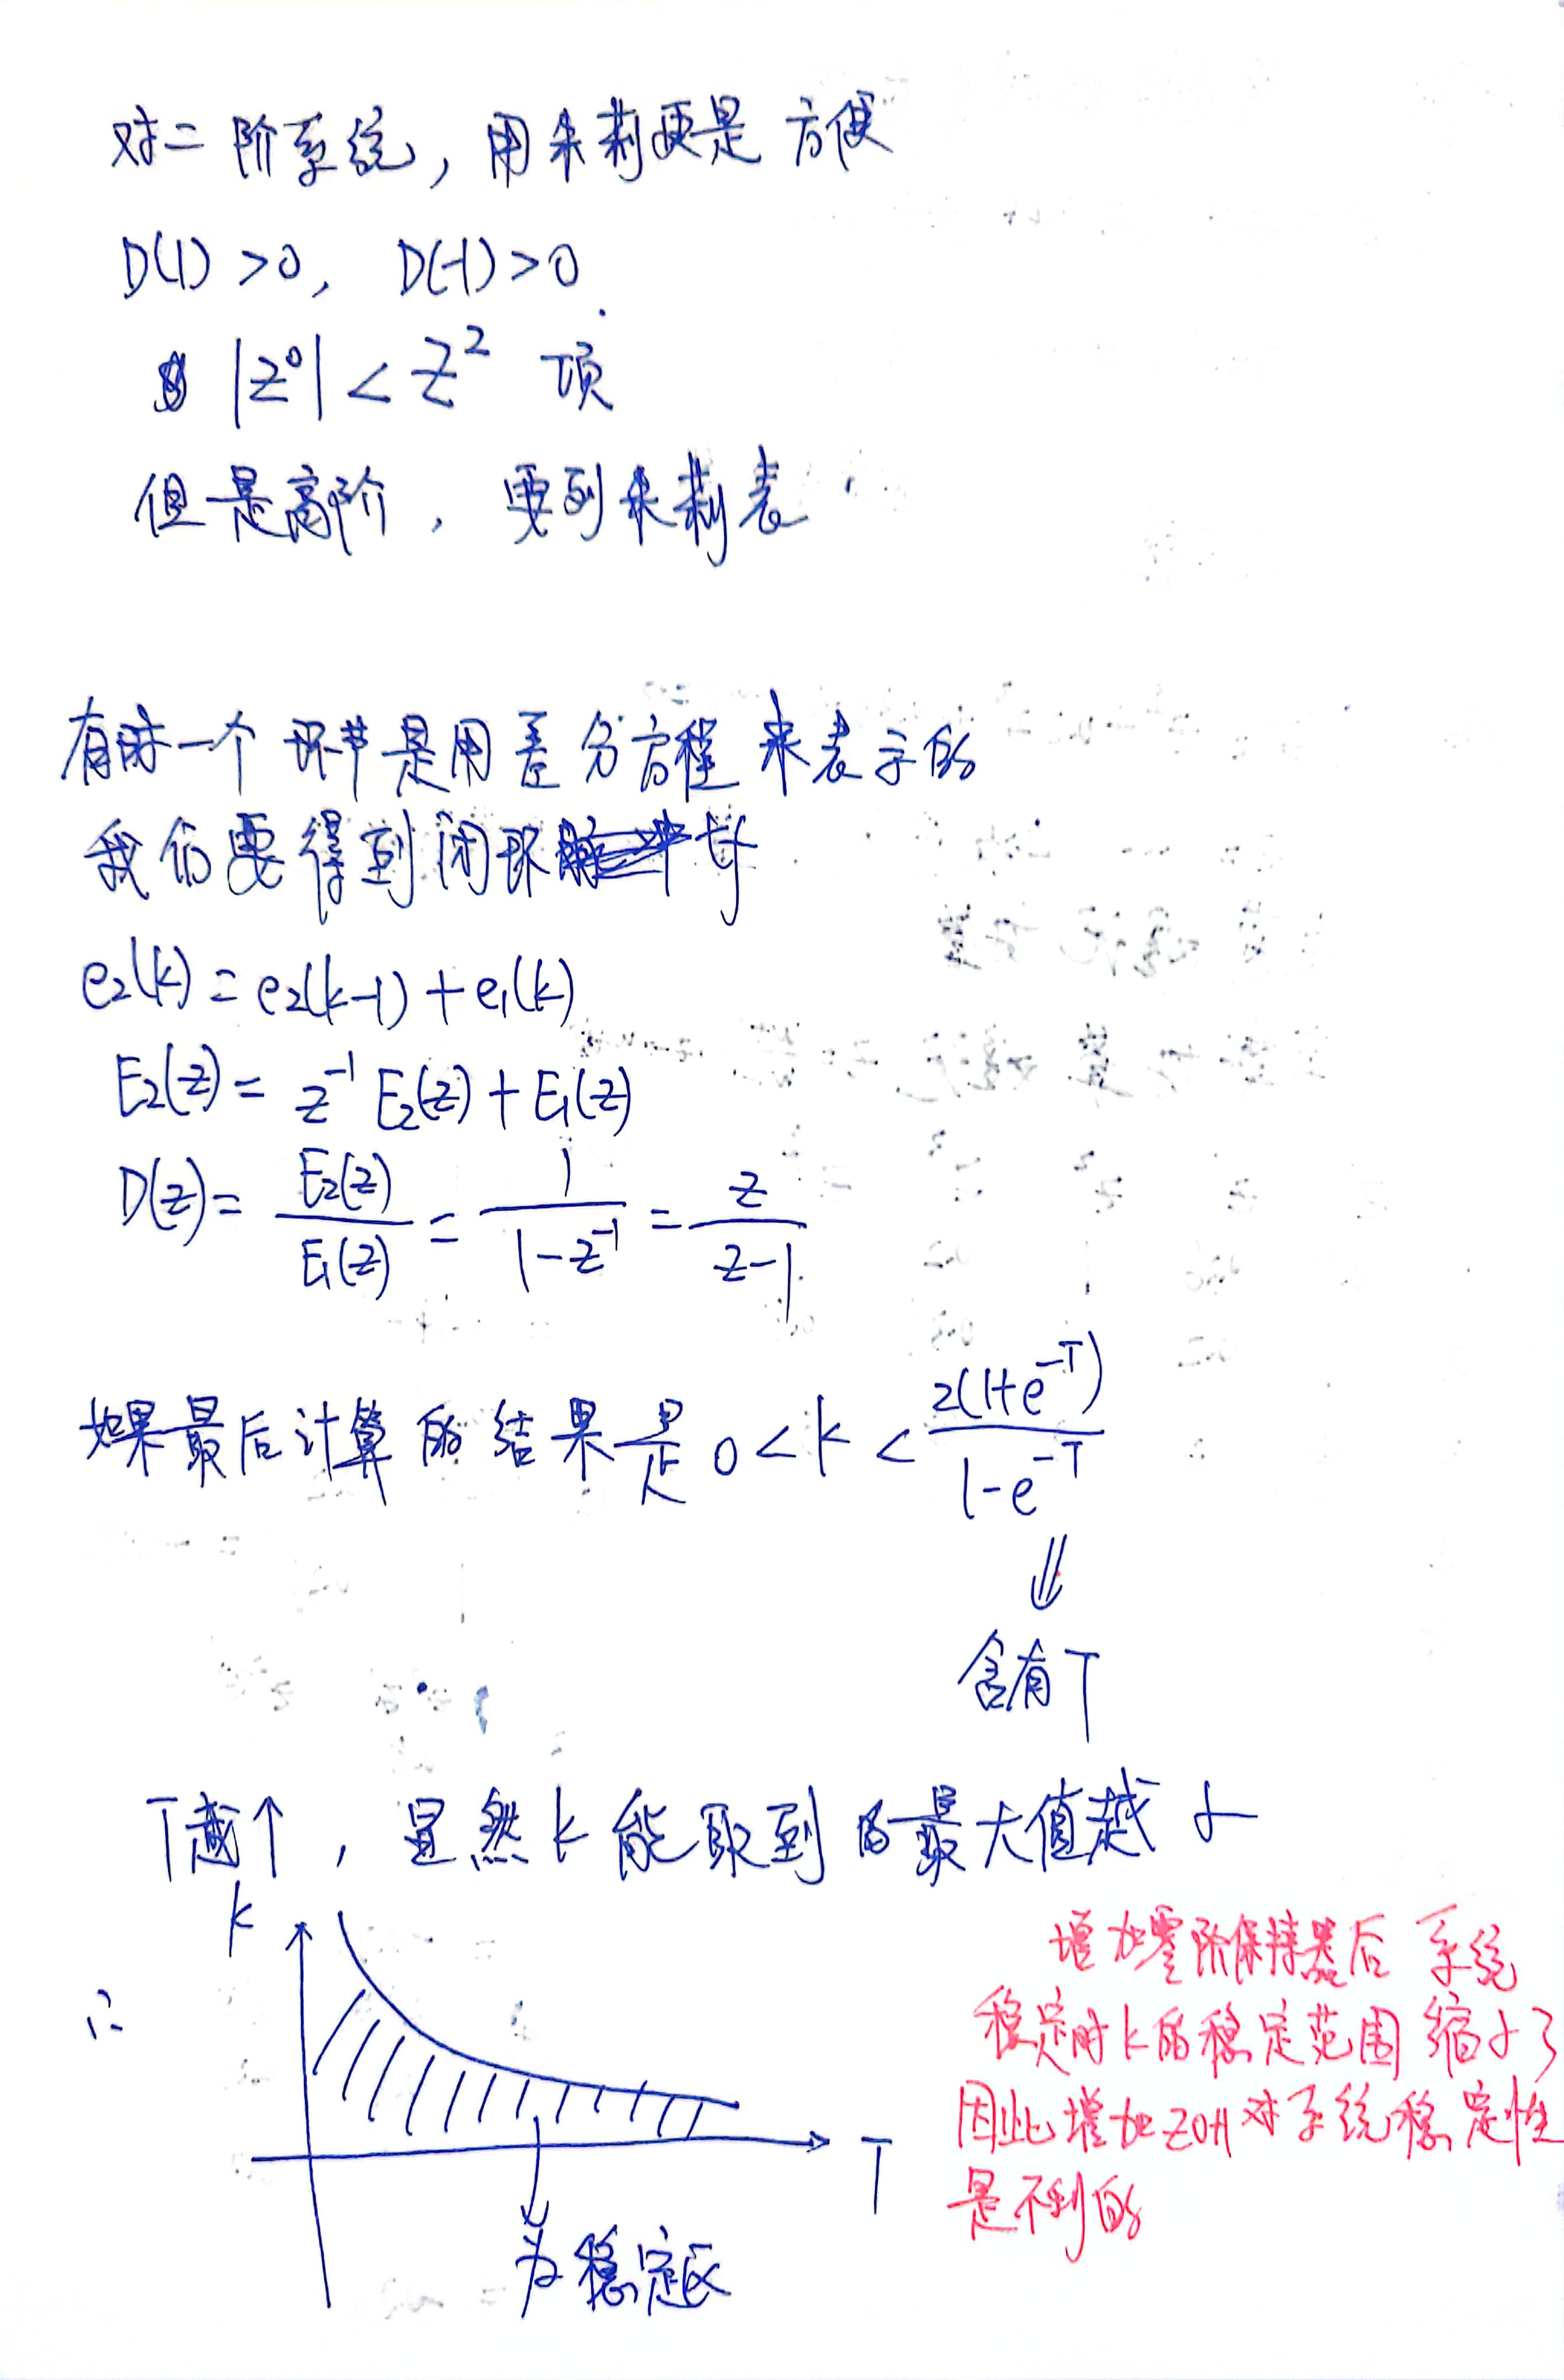 对二阶系统,用朱莉更是方便
D(1)>0, D(-1)>0
|z⁰| < z² 项
但是高阶,要列朱莉表
有时一个环节是用差分方程来表示的
我们要得到闭环
e₂(k)=e₂(k-1)+e₁(k)
E₂(z)= z⁻¹ E₂(z)+E₁(z)
D(z)= E₂(z)/E₁(z) = 1/(1-z⁻¹) = z/(z-1)
如果最后计算的结果是 0<k< 2(1+e^{-T})/(1-e^{-T})
⇓
含有T
T越↑,显然k能取到的最大值越小
k
∴
T
为稳定区
增加零阶保持器后 系统
稳定时k的稳定范围缩小了
因此增加ZOH对系统稳定性
是不利的